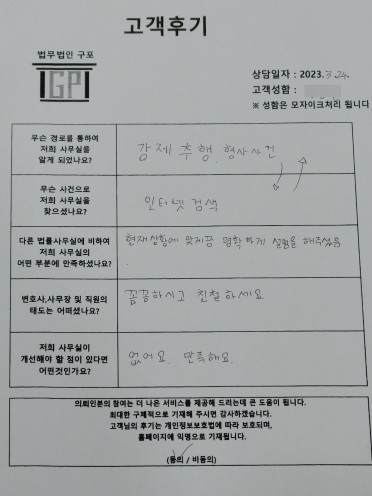 고객후기
법무법인 구포
GP
상담일자 : 2023. 3.24.
고객성함 :
※ 성함은 모자이크처리 됩니다
무슨 경로를 통하여
저희 사무실을
알게 되었나요?
강제 추행, 형사사건
무슨 사건으로
저희 사무실을
찾으셨나요?
인터넷 검색
다른 법률사무실에 비하여
저희 사무실의
어떤 부분에 만족하셨나요?
현재상황에 맞게끔 명확하게 설명을 해주셨음
변호사,사무장 및 직원의
태도는 어떠셨나요?
꼼꼼하시고 친절하세요
저희 사무실이
개선해야 할 점이 있다면
어떤것인가요?
없어요. 만족해요.
의뢰인분의 참여는 더 나은 서비스를 제공해 드리는데 큰 도움이 됩니다.
최대한 구체적으로 기재해 주시면 감사하겠습니다.
고객님의 후기는 개인정보보호법에 따라 보호되며,
홈페이지에 익명으로 기재됩니다.
(동의 / 비동의)